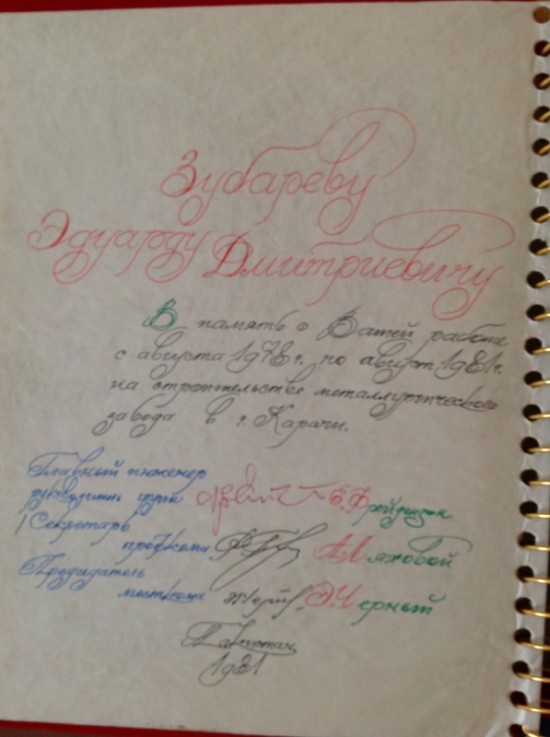 Зубареву
Эдуарду Дмитриевичу
В память о Вашей работе
с августа 1978 г. по август 1981 г.
на строительстве металлургического
завода в г. Карачи.
Главный инженер
руководитель группы Е. Фрейдензон
Секретарь
профкома А. Ляховой
Председатель
месткома Э. Черный
Пакистан,
1981